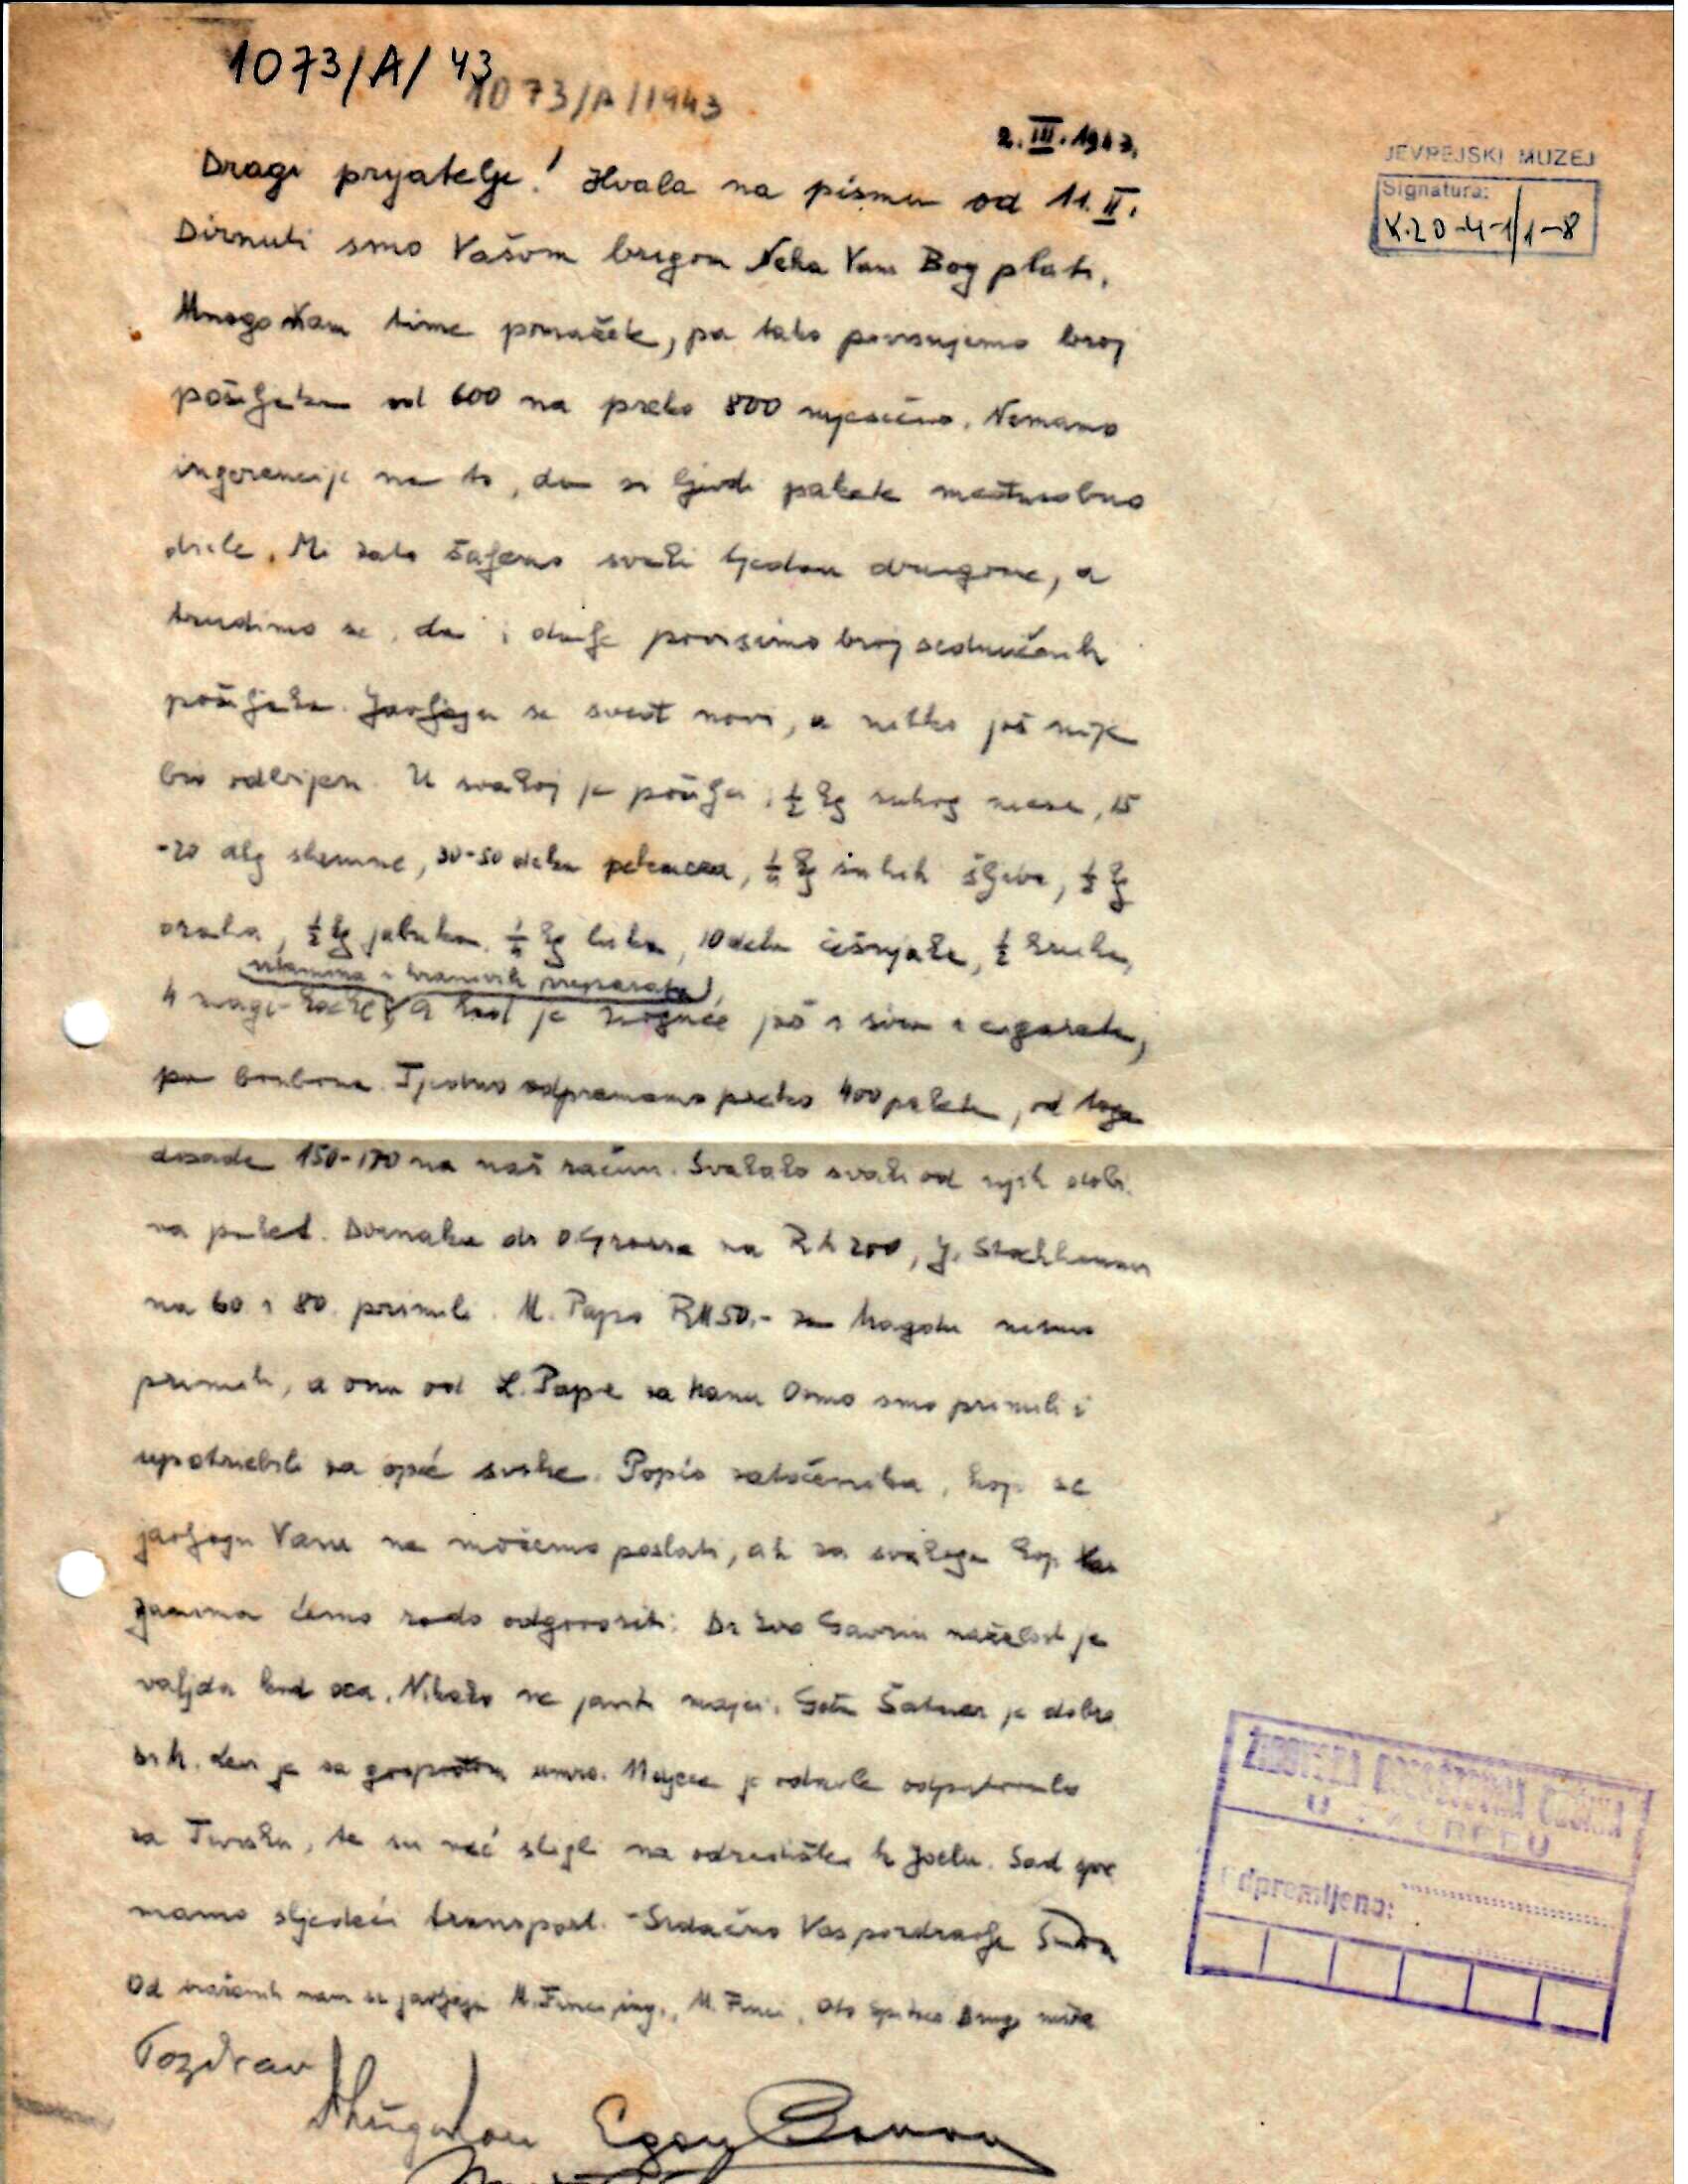 1073/A/43
1073/A/1943
2.III.1943.
JEVREJSKI MUZEJ
Signatura:
K.20-4-1/1-8
Dragi prijatelju! Hvala na pismu od 11.II.
Dirnuti smo Vašom brigom Neka Vam Bog plati.
Mnogo nam time pomažete, pa tako povisujemo broj
pošiljaka od 600 na preko 800 mjesečno. Nemamo
ingerencije na to, da si ljudi pakete međusobno
diele. Mi zato šaljemo svaki tjedan drugome, a
trudimo se, da i dalje povisimo broj
pošiljaka. Javljaju se sveđ novi, a nitko još nije
bio odbijen. U svakoj je pošiljci ½ kg suhog mesa, 15
-20 dkg slanine, 30-50 deka pekmeza, ¼ kg suhih šljiva, ½ kg
oraha, ½ kg jabuka, ¼ kg luka, 10 deka češnjaka, ½ kruha,
vitamina i hranivih preparata
4 magi-kocke, a kad je moguće još i sira i cigareta,
pa bonbona. Tjedno odpremamo preko 400 paketa, od toga
dosada 150-170 na naš račun. Svakako svaki od njih dobi-
va paket. Doznaku dr O. Grossa na RM 200, J.
na 60 i 80 primili. M. Papo RM 50.- za Magdu nismo
primili, a onu od L. Pape za Hanu Osmo smo primili i
upotriebili za opće svrhe. Popis zatočenika, koji se
javljaju Vama ne možemo poslati, ali za svakoga koji Vas
zanima ćemo rado odgovoriti: Dr Ivo Gavrin nažalost je
valjda kod oca. Nikako ne javiti majci. Šatner je dobro
Dr M. Levi je sa gospođom umro. Majcen je odavle odputovalo
za Tursku, te su već stigli na odredište k Joelu. Sad spre
mamo sljedeći transport. - Srdačno Vas pozdravlja
Od nam se javljaju M. Finci ing., M. Finci, Oto Spitzer Drugi ništa
Pozdrav
Egon
ŽIDOVSKA BOGOŠTOVNA OBĆINA
U ZAGREBU
Odpremljeno: